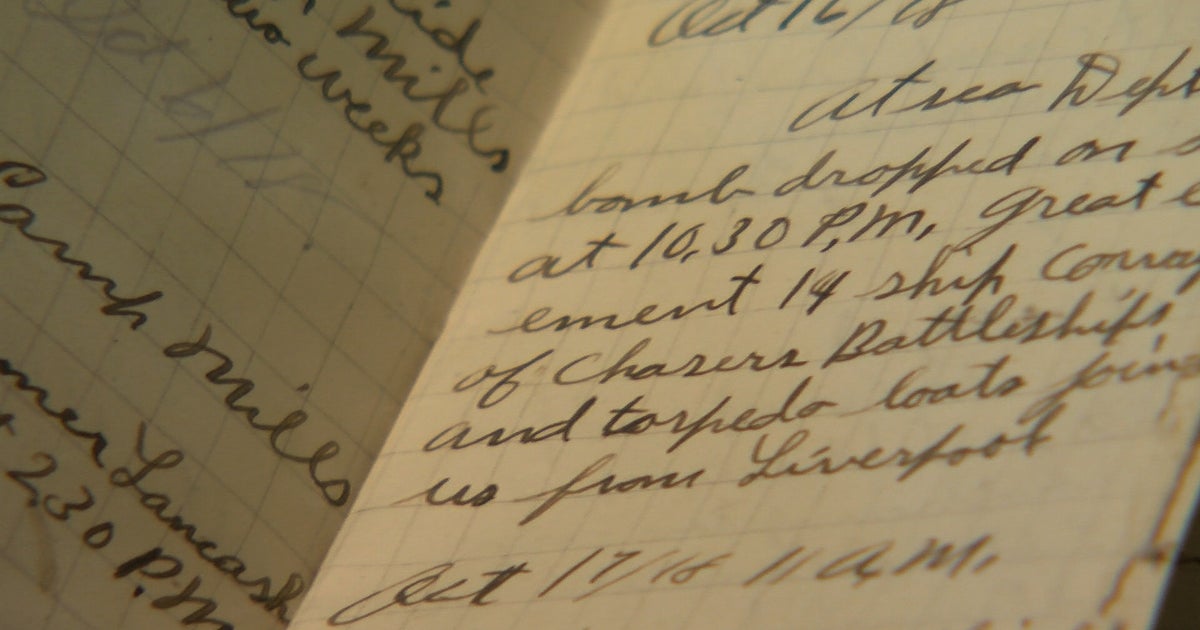 Mills
weeks
Oct 6/18
Camp Mills
Lancash
2.30 P.M
Oct 16/18
At sea Dept
bomb dropped on s
at 10,30 P,M, great e
ement 14 ship Convoy
of Chasers Battleships
and torpedo boats join
us from Liverpool
Oct 17/18 11 A,M,